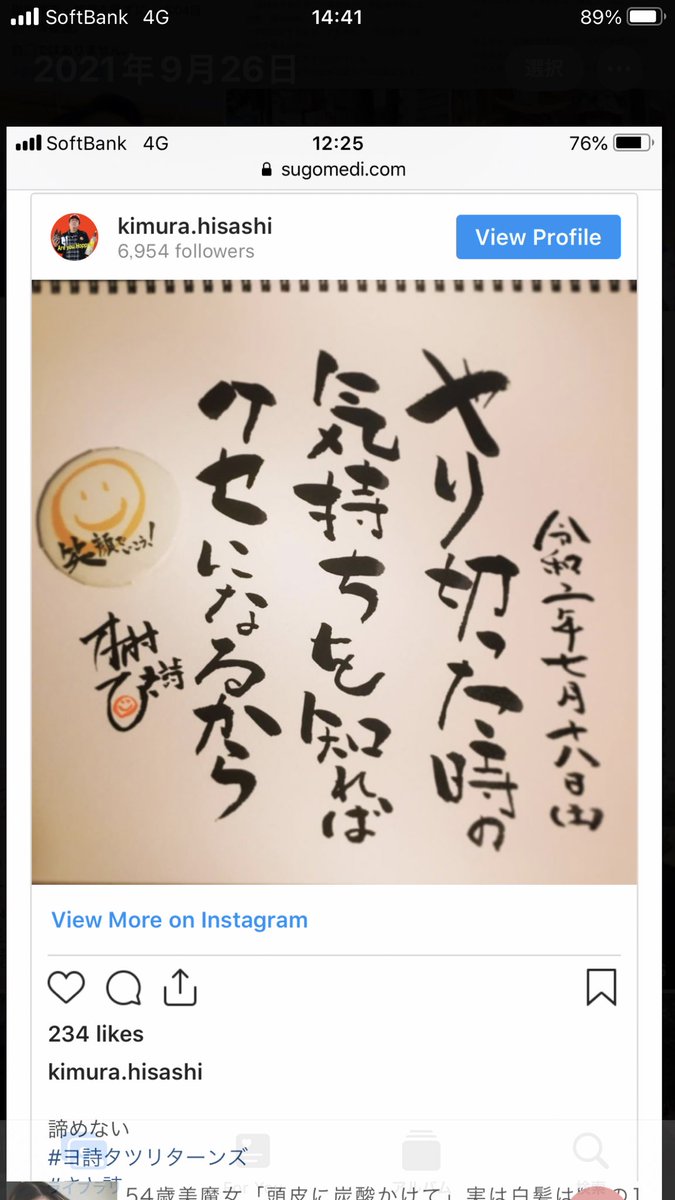 SoftBank 4G 14:41 89%
2021年9月26日 選択
SoftBank 4G 12:25 76%
sugomedi.com
kimura.hisashi
6,954 followers
View Profile
令和二年七月十八日(土)
やり切った時の
気持ちを知れば
クセになるから
笑顔でいこう!
View More on Instagram
234 likes
kimura.hisashi
諦めない
#ヨ詩タツリターンズ
54歳美魔女「頭皮に炭酸かけて」実は白髪は